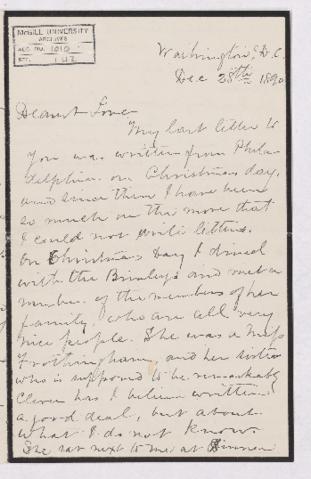 McGILL UNIVERSITY
ARCHIVES
ACC. NO. 1010
REF.
Washington D.C.
Dec 28th 1890
Dearest Love
My last letter to
you was written from Phila-
delphia on Christmas day,
and since then I have been
so much on the move that
I could not write letters.
On Christmas Day I dined
with the and met a
number of the members of her
family, who are all very
nice people. She was a Miss
Frothingham, and her sister
who is supposed to be remarkably
clever has I believe written
a good deal, but about
what I do not know.
She sat next to me at dinner